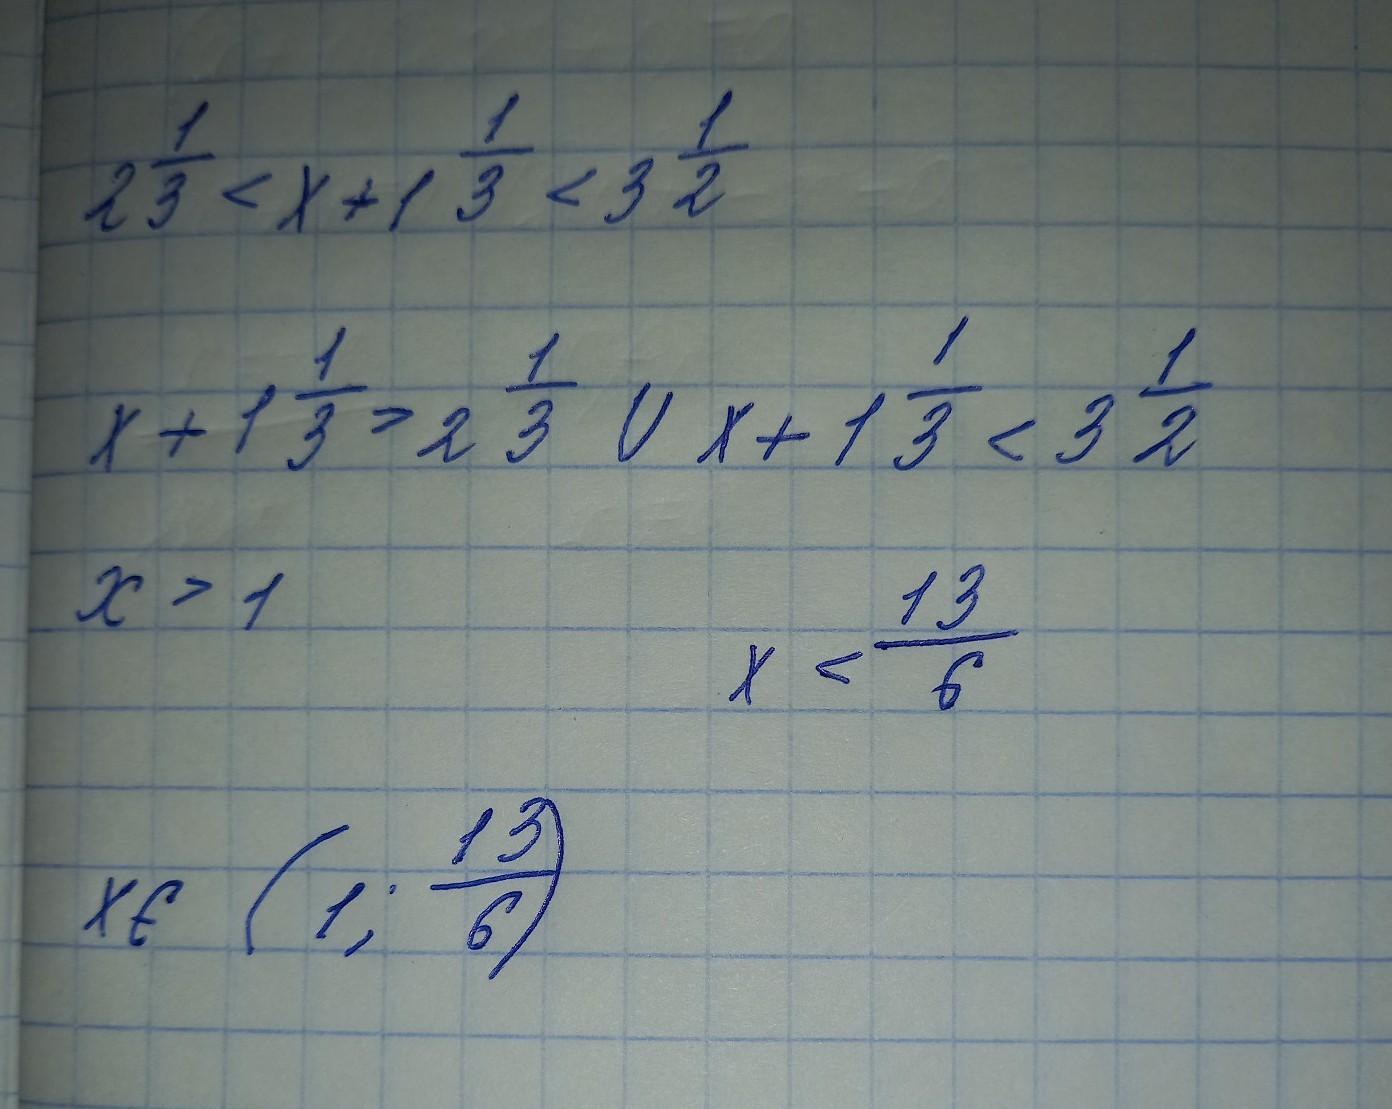 2 1/3 < x + 1 1/3 < 3 1/2
x + 1 1/3 > 2 1/3 U x + 1 1/3 < 3 1/2
x > 1 x < 13/6
x ∈ (1; 13/6)